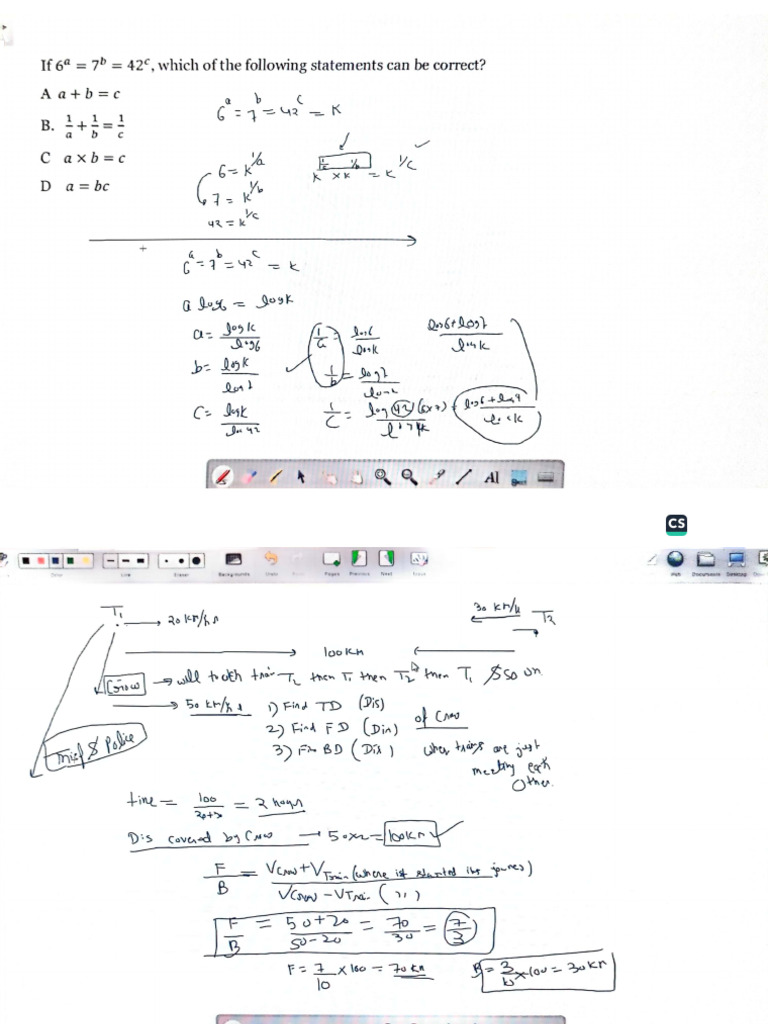 If 6ᵃ = 7ᵇ = 42ᶜ, which of the following statements can be correct?
A a + b = c
B. 1/a + 1/b = 1/c
C a × b = c
D a = bc
6ᵃ = 7ᵇ = 42ᶜ = K
6 = K^1/a
7 = K^1/b
42 = K^1/c
K^1/a × K^1/b = K^1/c
6ᵃ = 7ᵇ = 42ᶜ = K
a log6 = logK
a = logK/log6
b = logK/log7
C = logK/log42
1/a = log6/logK
1/b = log7
1/C = log(42)(6×7)
log6+log7/logK
log6+log7/logK
AI
CS
Color
Line
Eraser
Backgrounds
Undo
Pages
Previous
Next
Erase
Web
Documents
Desktop
T₁ → 20 km/hr
30 km/h T₂
100km
Crow → will touch train T₂ then T₁ then T₂ then T₁ & so on
→ 50 km/hr
1) Find TD (Dis)
2) Find FD (Dis)
3) Fin BD (Dis)
of Crow
when trains are just
meeting each
other.
Thief & Police
time = 100 = 2 hours
Dis covered by Crow → 50×2 = 100km
F/B = VCrow + VTrain (where it started its journey)/VCrow − VTrain (,,)
F/B = 50+20/50-20 = 70/30 = 7/3
F = 7/10 × 100 = 70km
B = 3/10 × 100 = 30km